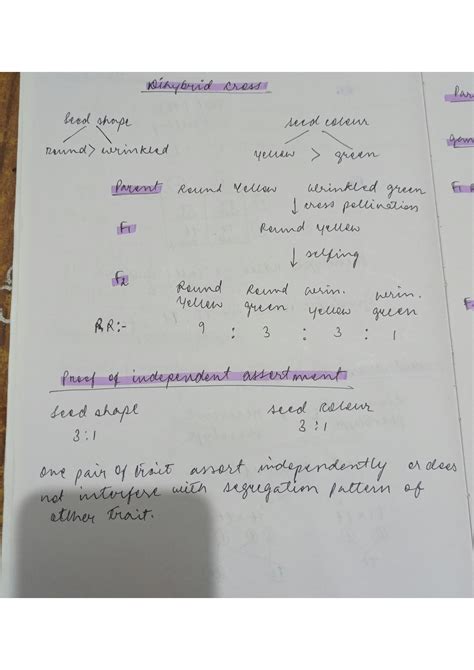 Dihybrid cross
Seed shape
Seed colour
round > wrinkled
yellow > green
Parent Round Yellow Wrinkled green
↓ cross pollination
F1 Round yellow
↓ selfing
F2 Round Round wrin. wrin.
yellow green yellow green
9 : 3 : 3 : 1
Proof of independent assortment
Seed shape
3:1
Seed colour
3:1
One pair of trait assort independently or does
not interfere with segregation pattern of
other trait.
Par
F1